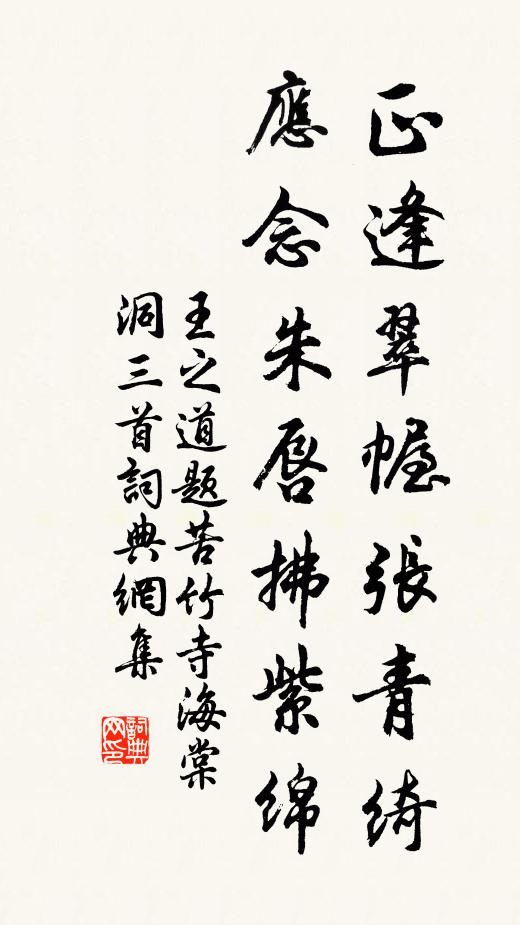 正逢翠幄張青綺
應念朱唇拂紫綿
王之道題苦竹寺海棠
洞三首詞典網集
詞典網印